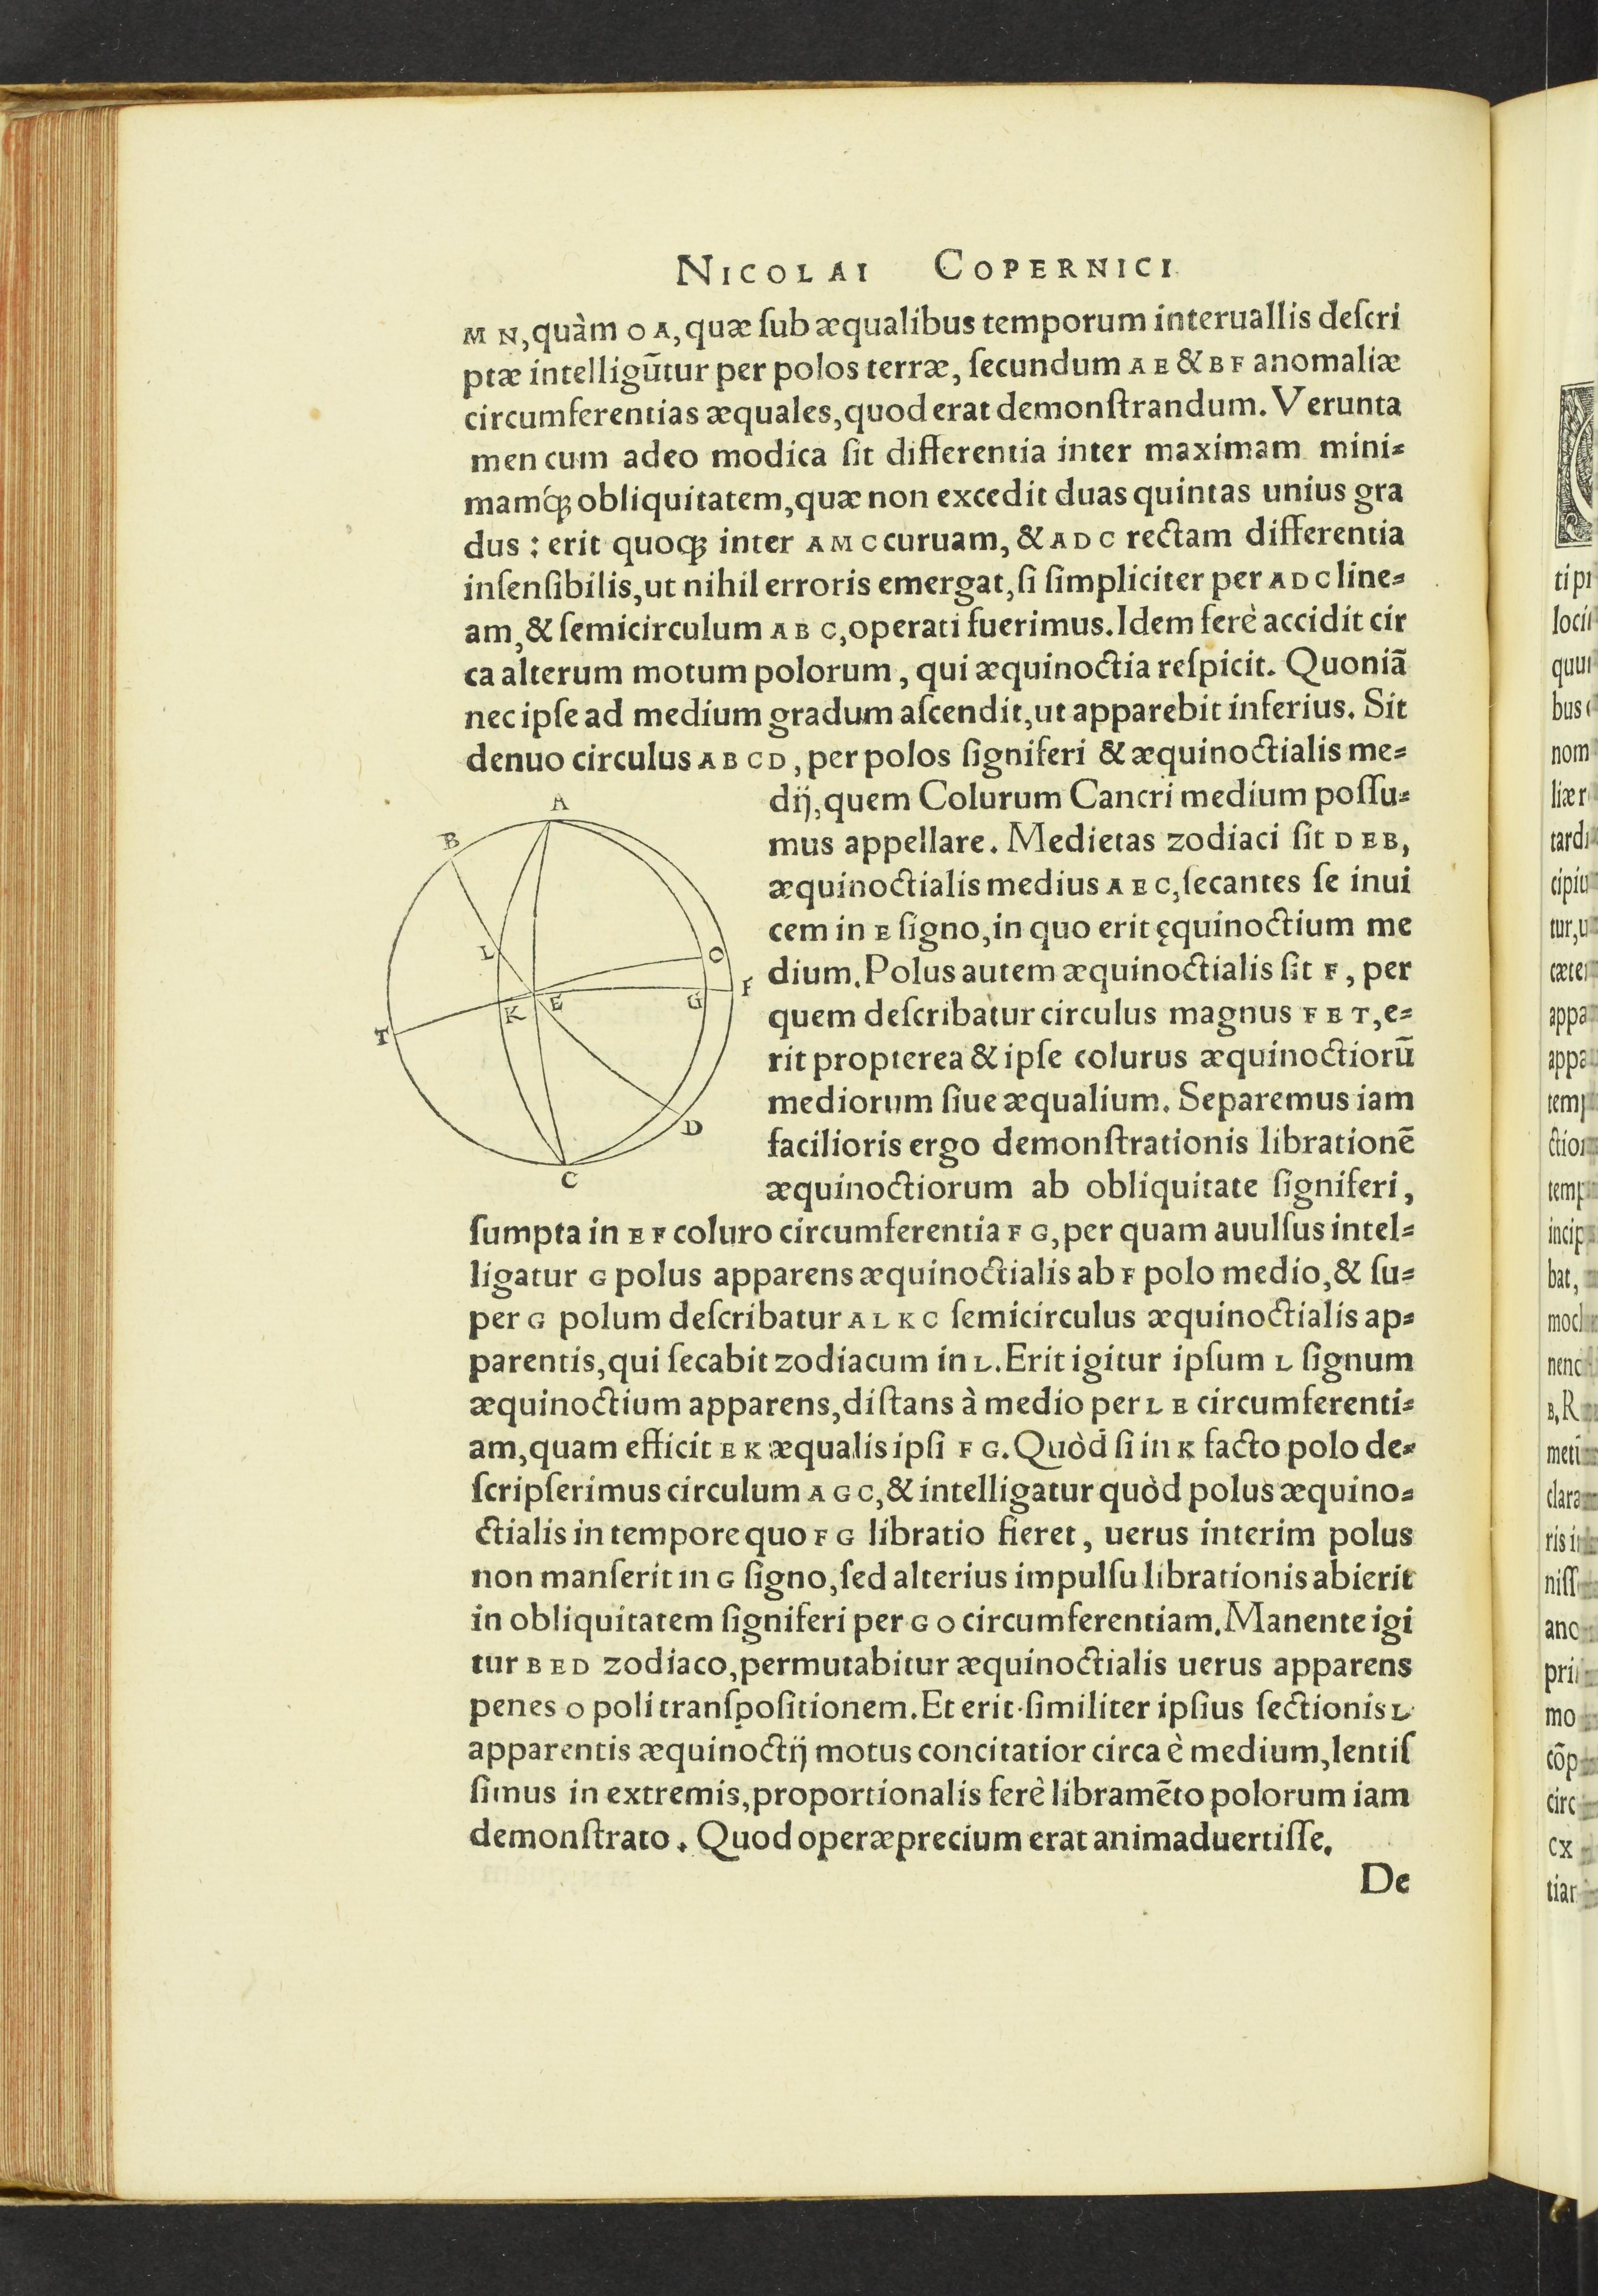 NICOLAI COPERNICI
M N, quàm O A, quæ ſub æqualibus temporum interuallis deſcri
ptæ intelligũtur per polos terræ, ſecundum A E & B F anomaliæ
circumferentias æquales, quod erat demonſtrandum. Verunta
men cum adeo modica ſit differentia inter maximam mini⸗
mamq́ꝫ obliquitatem, quæ non excedit duas quintas unius gra
dus : erit quoqꝫ inter A M C curuam, & A D C rectam differentia
inſenſibilis, ut nihil erroris emergat, ſi ſimpliciter per A D C line⸗
am, & ſemicirculum A B C, operati fuerimus. Idem ferè accidit cir
ca alterum motum polorum, qui æquinoctia reſpicit. Quoniã
nec ipſe ad medium gradum aſcendit, ut apparebit inferius. Sit
denuo circulus A B C D, per polos ſigniferi & æquinoctialis me⸗
dij, quem Colurum Cancri medium poſſu⸗
mus appellare. Medietas zodiaci ſit D E B,
æquinoctialis medius A E C, ſecantes ſe inui
cem in E ſigno, in quo erit ęquinoctium me
dium. Polus autem æquinoctialis ſit F, per
quem deſcribatur circulus magnus F E T, e⸗
rit propterea & ipſe colurus æquinoctiorũ
mediorum ſiue æqualium. Separemus iam
facilioris ergo demonſtrationis librationẽ
æquinoctiorum ab obliquitate ſigniferi,
A
B
L
O
F
K
E
G
T
D
C
ſumpta in E F coluro circumferentia F G, per quam auulſus intel⸗
ligatur G polus apparens æquinoctialis ab F polo medio, & ſu⸗
per G polum deſcribatur A L K C ſemicirculus æquinoctialis ap⸗
parentis, qui ſecabit zodiacum in L. Erit igitur ipſum L ſignum
æquinoctium apparens, diſtans à medio per L E circumferenti⸗
am, quam efficit E K æqualis ipſi F G. Quòd ſi in K facto polo de⸗
ſcripſerimus circulum A G C, & intelligatur quòd polus æquino⸗
ctialis in tempore quo F G libratio fieret, uerus interim polus
non manſerit in G ſigno, ſed alterius impulſu librationis abierit
in obliquitatem ſigniferi per G O circumferentiam. Manente igi
tur B E D zodiaco, permutabitur æquinoctialis uerus apparens
penes O poli tranſpoſitionem. Et erit ſimiliter ipſius ſectionis L
apparentis æquinoctij motus concitatior circa è medium, lentiſ
ſimus in extremis, proportionalis ferè libramẽto polorum iam
demonſtrato. Quod operæprecium erat animaduertiſſe.
De